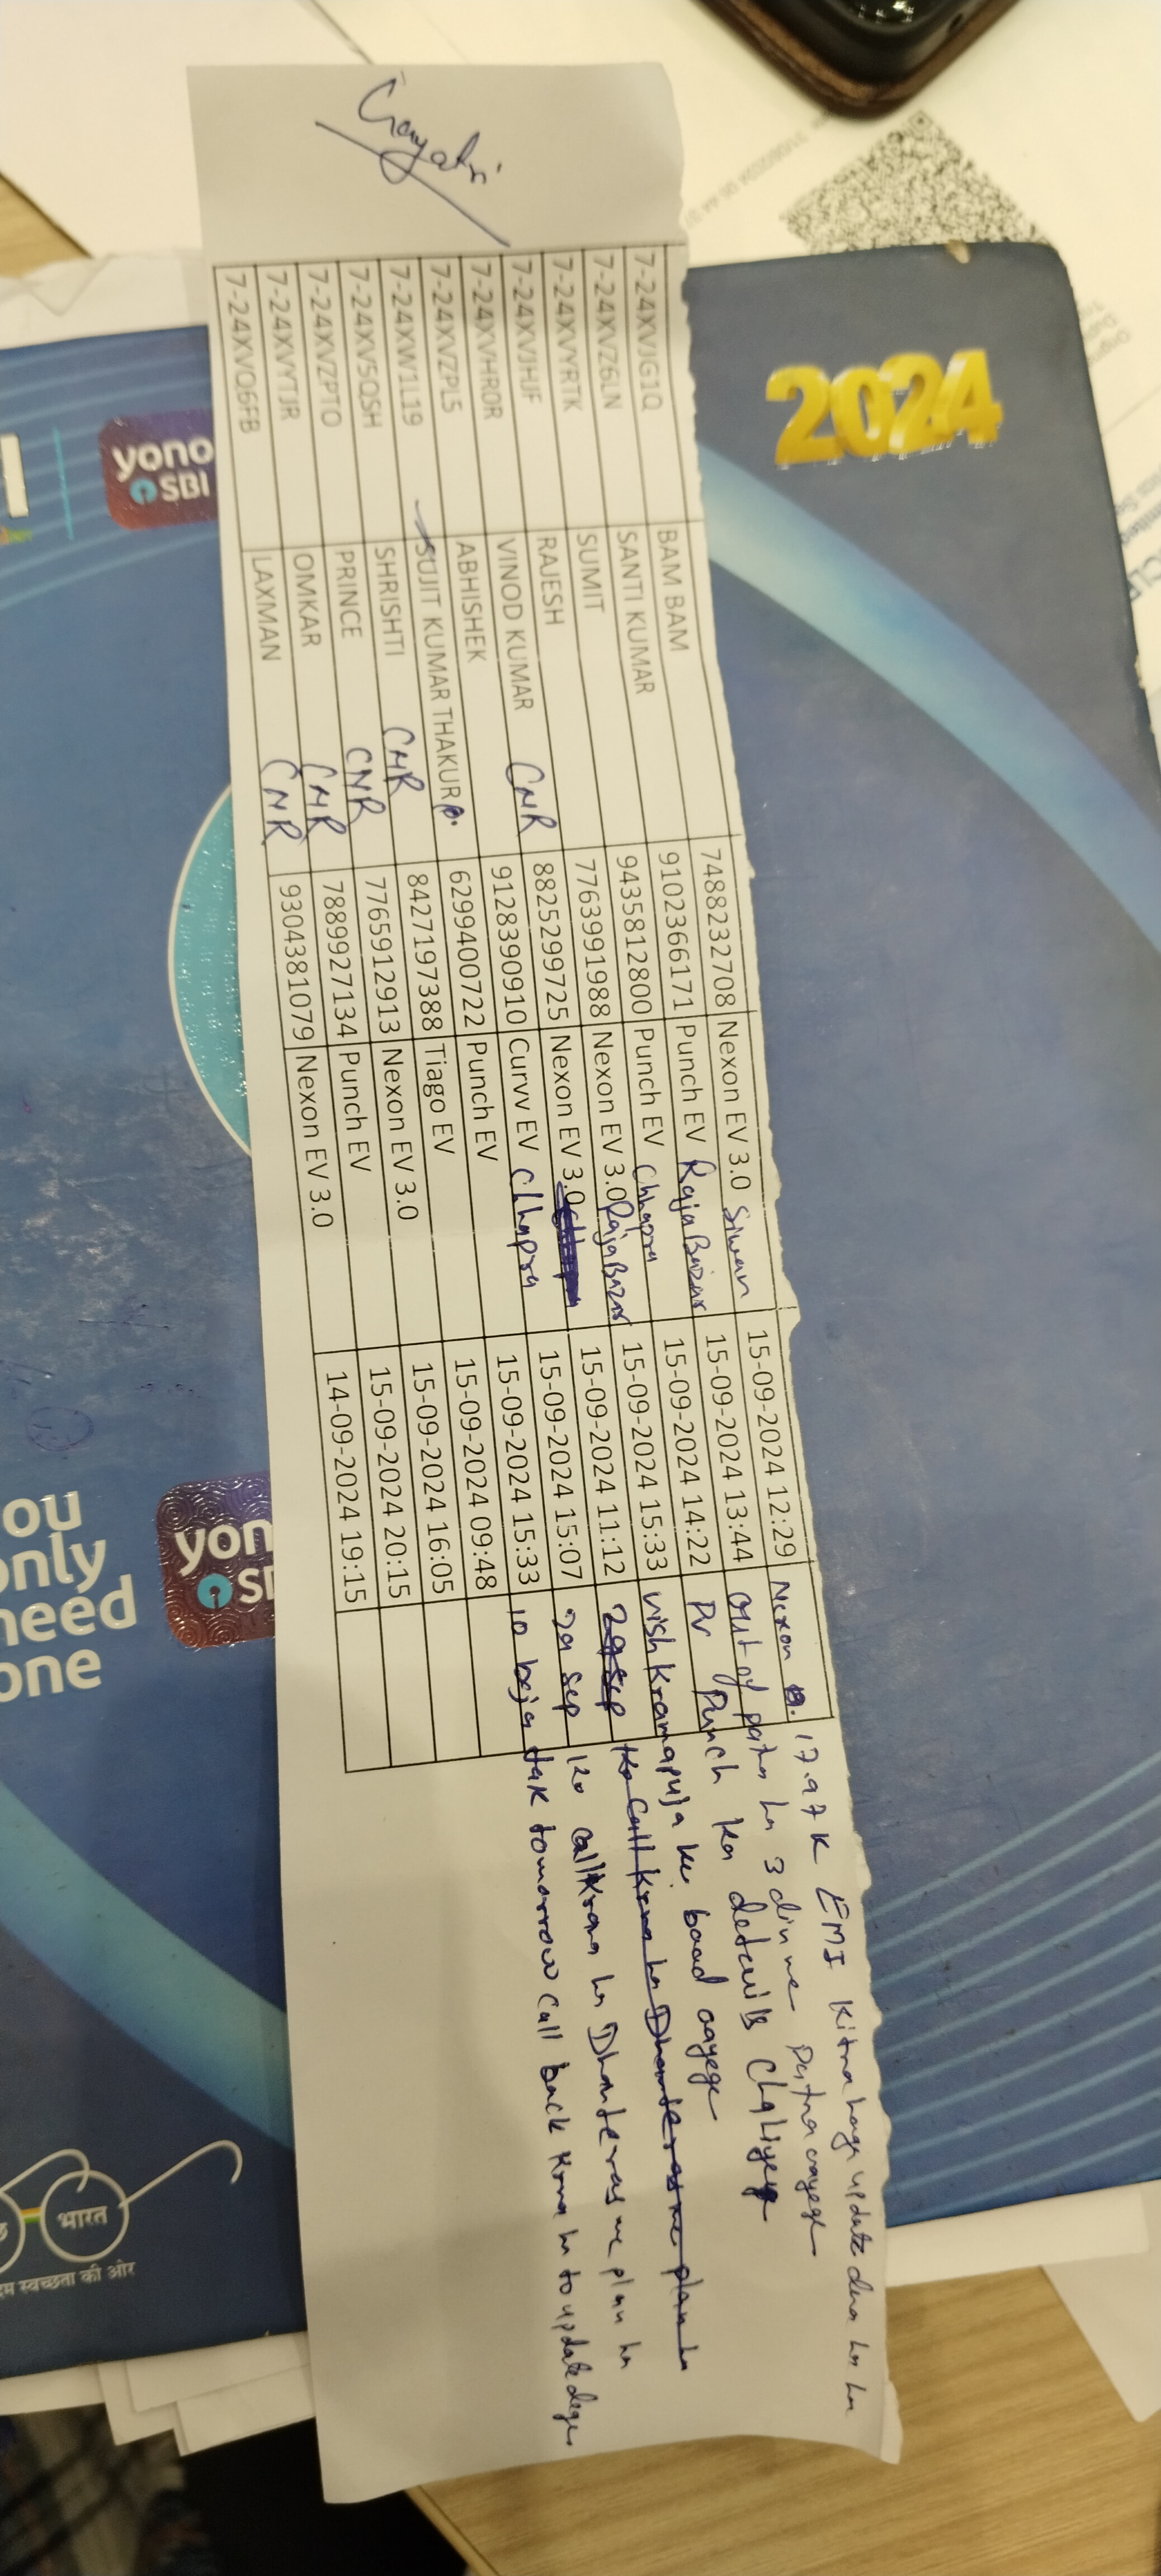 Gayatri
7-24XVJG1Q BAM BAM 7488232708 Nexon EV 3.0 Siwan 15-09-2024 12:29 Nexon 17.97K EMI Kitna hoga update dena hn
7-24XVZ6LN SANTI KUMAR 9102366171 Punch EV Raja Bazar 15-09-2024 13:44 Out of patna hn 3 din me Patna aayege
7-24XVYRTK SUMIT 9435812800 Punch EV Chhapra 15-09-2024 14:22 Pv Punch ka details chahiye
7-24XVJHJF RAJESH 7763991988 Nexon EV 3.0 RajaBazar 15-09-2024 15:33 vishkramapuja ke baad aayege
7-24XVHR0R VINOD KUMAR CNR 8825299725 Nexon EV 3.0 15-09-2024 11:12 29 sep ko Call krna hn Dhanteras me plan hn
7-24XVZPL5 ABHISHEK 9128390910 Curvv EV Chhapra 15-09-2024 15:07 29 sep ko call krana hn Dhanteras me plan hn
7-24XW1L19 SUJIT KUMAR THAKUR 6299400722 Punch EV 15-09-2024 15:33 10 baje tak tomorrow call back krna hn to update dege
7-24XV5QSH SHRISHTI CNR 8427197388 Tiago EV 15-09-2024 09:48
7-24XVZPTO PRINCE CNR 7765912913 Nexon EV 3.0 15-09-2024 16:05
7-24XVYTJR OMKAR CNR 7889927134 Punch EV 15-09-2024 20:15
7-24XVQ6FB LAXMAN CNR 9304381079 Nexon EV 3.0 14-09-2024 19:15
2024
yono
SBI
yon
SB
ou
only
need
one
भारत
स्वच्छता की ओर